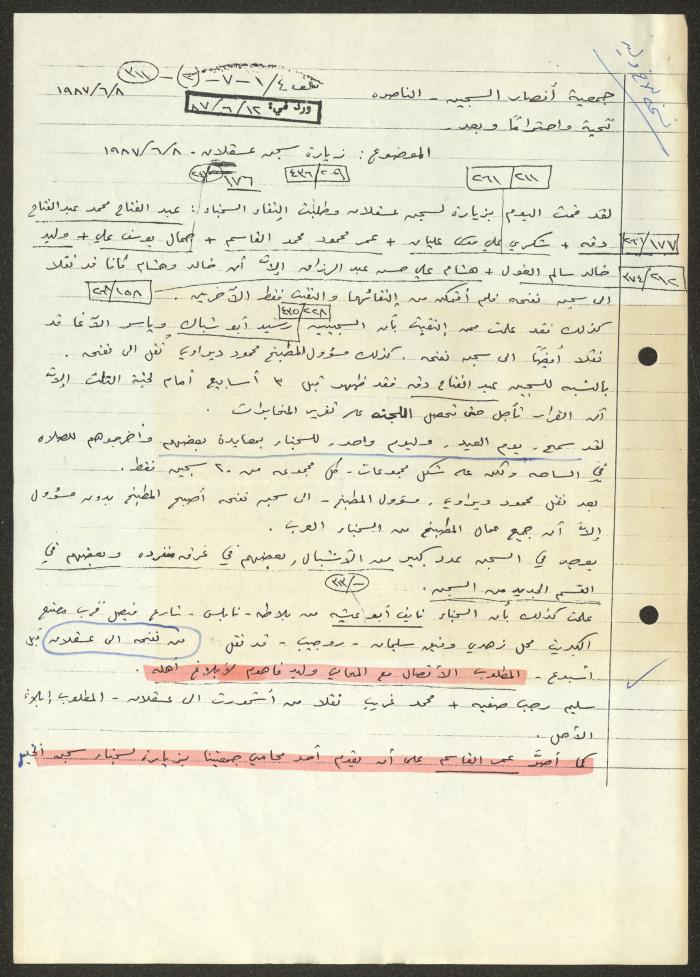 نسخة
٣١١
ملف ٤/١-٧-
١٩٨٧/٦/٨
ورد في: ٨٧/٦/١٢
جمعية أنصار السجين - الناصره
تحية واحترامًا وبعد -
الموضوع: زيارة سجن عسقلان - ١٩٨٧/٦/٨
٢١١/٢٦١
٢٠٩/٤٣٦
١٧٦
لقد قمت اليوم بزيارة لسجن عسقلان وطلبت التقاء السجناء: عبد الفتاح محمد عبد الفتاح
١٧٧/
دقه + شكري علي عليان + عمر محمود محمد القاسم + جمال يوسف علي + وليد
٢٩٢/٣٧٤
خالد سالم الغول + هشام علي حسن عبد الرزاق إلاّ أن خالد وهشام كانا قد نقلا
الى سجن نفحه فلم أتمكن من إلتقائهما والتقيت فقط الآخرين.
١٥٨/
٢٢٨/٤٣٥
كذلك فقد علمت ممن إلتقيت بأن السجينين رسيد أبو شباك وياسر الآغا قد
نقلا أيضًا الى سجن نفحه. كذلك مسؤول المطبخ محمود ديراوي نُقل الى نفحه.
بالنسبه للسجين عبد الفتاح دقه فقد ظهر قبل ٣ أسابيع أمام لجنة الثلث إلاّ
أن القرار تأجل حتى تحصل اللجنه على تقرير المخابرات.
لقد سمح، يوم العيد، وليوم واحد، للسجناء بمعايدة بعضهم وأخرجوهم للصلاه
في الساحه ولكن على شكل مجموعات - كل مجموعه من ٢٠ سجين فقط.
بعد نقل محمود ديراوي، مسؤول المطبخ - الى سجن نفحه أصبح المطبخ بدون مسؤول
إلاّ أن جميع عمال المطبخ من السجناء العرب.
يوجد في السجن عدد كبير من الأشبال، بعضهم في غرف منفرده وبعضهم في
القسم الجديد من السجن.
٣١٣/-
علمت كذلك بأن السجناء نايف أبو عيشه من بلاطه - نابلس - شارع فيصل قرب مصنع
الكبريت محل زهدي وفتحي سلمان - روجيب - قد نقل من نفحه الى عسقلان قبل
أسبوع - المطلوب الأتصال مع المحامي وليد فاهوم لأبلاغ أهله.
سليم رجب صفيه + محمد غريب نقلا من أشمورت الى عسقلان - المطلوب إبلاغ
الأهل.
كما أصرّ عمر القاسم على أن يقوم أحد محامي جمعيتنا بزيارة لسجناء سجن الخليل